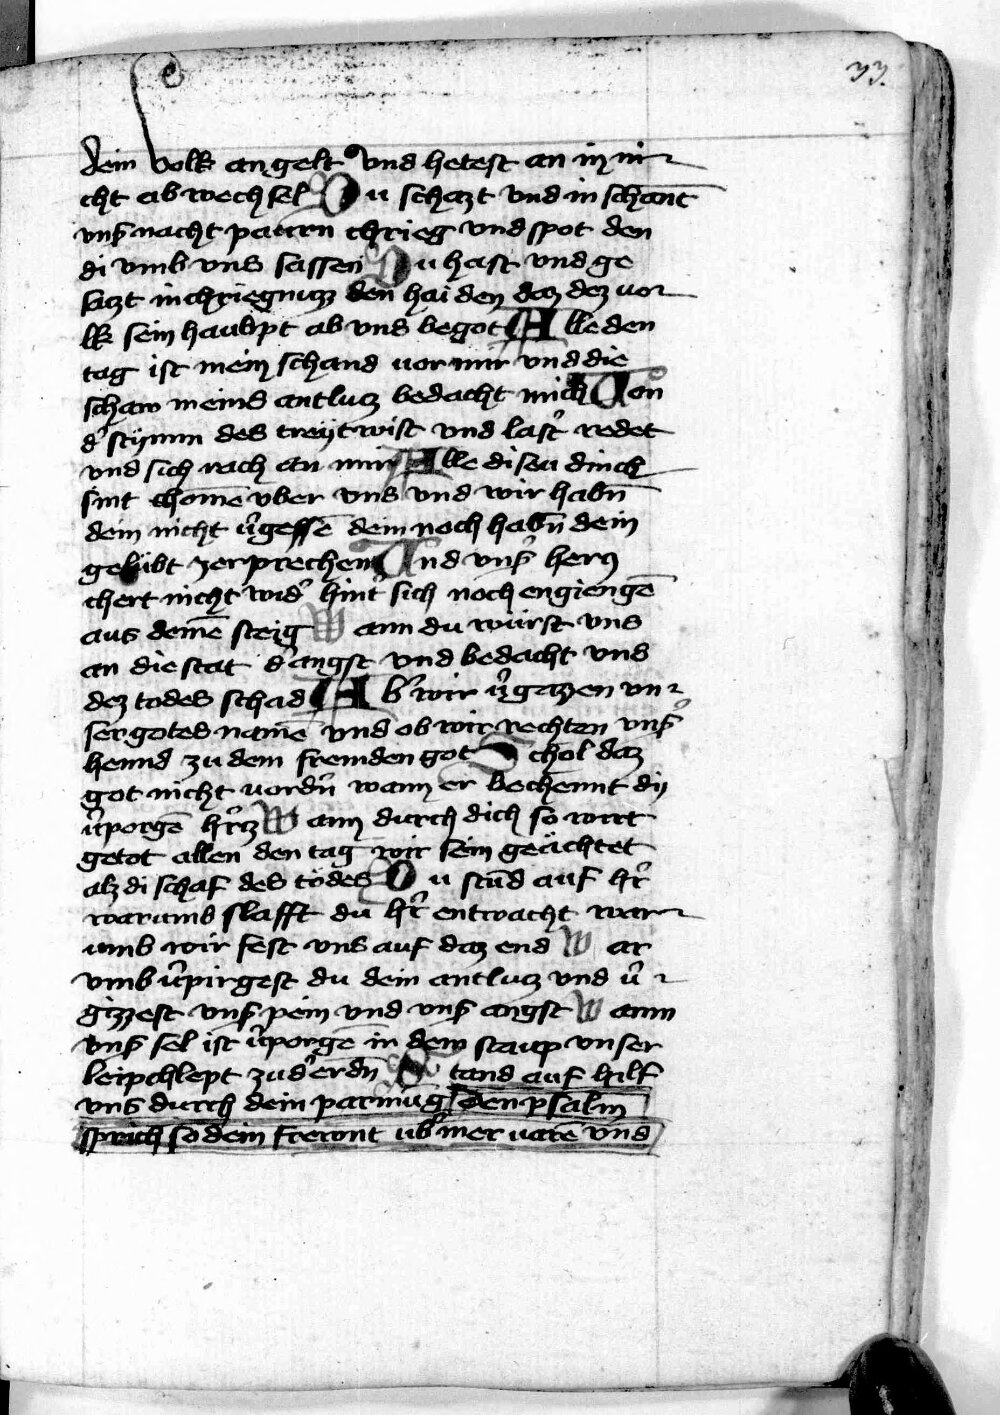 33.
dein volk an gelt und hetest an in ni
cht ab wechsel Du schazt und in schant
unsͬ nacht pauren chrieg und spot den
di umb uns sassen Du hast uns ge
sazt in chriegnuzz den haiden daz dez uo
lk sein haubpt ab uns begot Alle den
tag ist mein schand uor mir und die
scham meins antlucz bedacht mich Von
dͬ stymm des treytwist und lastͬ redet
und sich nach an mir Alle diseu dinch
sint chome͂ uber uns und wir habn͂
dein nicht uͬgesse͂ dein noch habn͂ dein
gelubt zerprechen Und unsͬ hercz
chert nicht widͬ hintͬ sich noch engienge͂
aus deine͂ steig Wann du wurst uns
an die stat dͬ angst und bedacht uns
dez todes schad Abͬ wir uͬgazzen un
ser gotes name͂ und ob wir rechten unsͬ
hennd zu dem fremden got Schol daz
got nicht uordͬn wann er bechennt dy
uͬporge͂ hͬrcz Wann durch dich so wert
getot allen den tag wir sein geachtet
alz di schaf des todes Du stu͂d auf hͬr
warumb slafft du hͬr entwacht war
umb wir fest uns auf daz end War
umb uͬpirgest du dein antlucz und uͬ
gizzest unsͬ pein und unsͬ angst Wann
unsͬ sel ist uͬporge͂ in dem staup unser
leip chlept zu dͬ erdn͂ Stand auf hilf
uns durch dein parmu͂g Den psalm
sprich so dein freront ubͬ mer uare͂ und